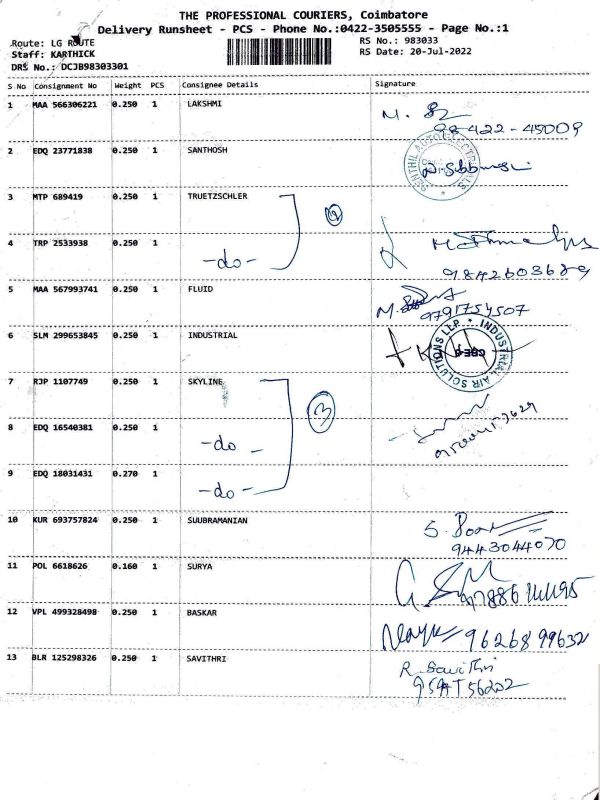 THE PROFESSIONAL COURIERS, Coimbatore
Delivery Runsheet - PCS - Phone No.:0422-3505555 - Page No.:1
Route: LG ROUTE
RS No.: 983033
Staff: KARTHICK
RS Date: 20-Jul-2022
DRS No.: DCJB98303301
S No Consignment No Weight PCS Consignee Details Signature
1 MAA 566306221 0.250 1 LAKSHMI
98422-45009
2 EDQ 23771838 0.250 1 SANTHOSH
SENTHIL AUTO ELECTRICALS
3 MTP 689419 0.250 1 TRUETZSCHLER
2
4 TRP 2533938 0.250 1
-do-
9842603689
5 MAA 567993741 0.250 1 FLUID
9791754507
6 SLM 299653845 0.250 1 INDUSTRIAL
INDUSTRIAL AIR SOLUTIONS LLP
CBE-6
7 RJP 1107749 0.250 1 SKYLINE
3
8 EDQ 16540381 0.250 1
-do-
9 EDQ 18031431 0.270 1
-do-
10 KUR 693757824 0.250 1 SUUBRAMANIAN
9443044070
11 POL 6618626 0.160 1 SURYA
12 VPL 499328498 0.250 1 BASKAR
9626899632
13 BLR 125298326 0.250 1 SAVITHRI
R. Savithri